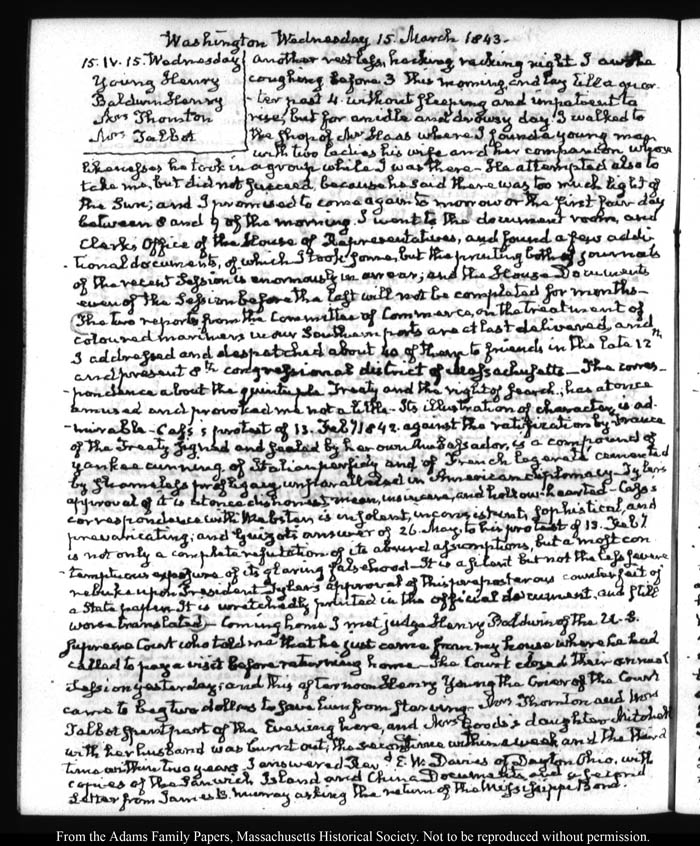 Washington Wednesday 15 March 1843.
15. IV. 15. Wednesday
Young Henry
Baldwin Henry
Mrs Thornton
Mrs Talbot
Another restless, hacking racking night. I awoke
coughing before 3 this morning, and lay till a quar-
-ter past 4 without sleeping and impatient to
rise, but for an idle and drowsy day. I walked to
the shop of Mr Haas where I found a young man
with two ladies his wife and her companion whose
likenesses he took in a group while I was there. He attempted also to
take me, but did not succeed, because he said there was too much light of
the Sun; and I promised to come again to morrow or the first fair day
between 8 and 9 of the morning. I went to the document room, and
Clerk's Office of the House of Representatives, and found a few addi-
-tional documents, of which I took some, but the printing both of journals
of the recent Session is enormously in arrear; and the House Documents
even of the Session before the last will not be completed for months—
The two reports from the Committee of Commerce, on the treatment of
coloured mariners in our Southern ports are at last delivered, and
I addressed and despatched about 40 of them to friends in the late 12th
and present 8th congressional district of Massachusetts— The corres-
-pondence about the quintuple Treaty and the right of search, has at once
amused and provoked me not a little. Its illustration of character is ad-
-mirable— Cass's protest of 13. Feby 1842. against the ratification by France
of the Treaty signed and sealed by her own Ambassador, is a compound of
Yankee cunning, of Italian perfidy and of French cemented
by shameless profligacy unparalleled in American diplomacy. Tyler's
approval of it is at once dishonest, mean, insincere, and hollow-hearted— Cass's
correspondence with Webster is insolent, inconsistent, sophistical, and
prevaricating; and Guizot's answer of 26 May, to his protest of 13. Feby
is not only a complete refutation of its absurd assumptions, but a most con-
-temptuous exposure of its glaring falsehood— It is a silent but not the less severe
rebuke upon President Tyler's approval of this preposterous counterfeit of
a State paper. It is wretchedly printed in the official document, and still
worse translated— Coming home I met judge Henry Baldwin of the U.S.
Supreme Court who told me that he just came from my house where he had
called to pay a visit before returning home. The Court closed their annual
Session yesterday; and this afternoon Henry Young the Crier of the Court
came to beg two dollars to save him from starving. Mrs Thornton and Mrs
Talbot spent part of the Evening here, and Mrs Goods's daughter Mitchell
with her husband was burnt out, the second time within a week and the third
time within two years. I answered Revd E. W. Davies of Dayton Ohio, with
copies of the Sandwich Island and China Documents, and a second
Letter from James B. Murray asking the return of the Mississippi Bond.
From the Adams Family Papers, Massachusetts Historical Society. Not to be reproduced without permission.